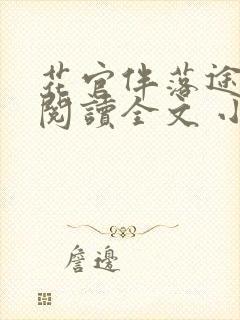 花官伴落途
閱讀全文 小
詹邊